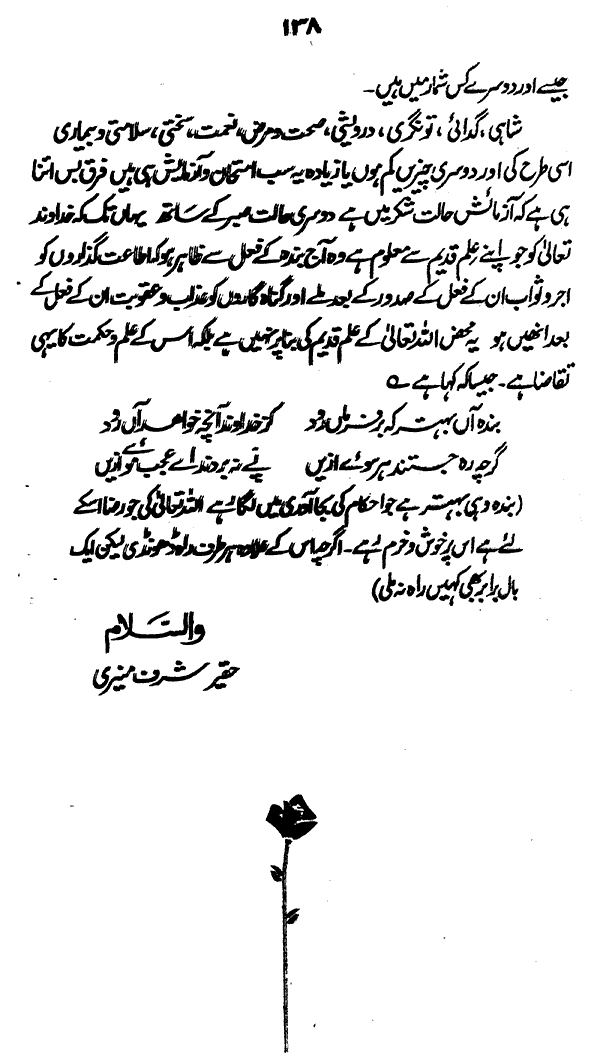 ۱۳۸
جیسے اور دوسرے کس شمار میں ہیں۔
شاہی، گدائی، تونگری، درویشی، صحت و مرض، نعمت، سختی، سلامتی و بیماری
اسی طرح کی اور دوسری چیزیں کم ہوں یا زیادہ یہ سب امتحان و آزمایش ہی ہیں فرق بس اتنا
ہی ہے کہ آزمائش حالت شکر میں ہے دوسری حالت صبر کے ساتھ یہاں تک کہ خداوند
تعالیٰ کو جو اپنے علم قدیم سے معلوم ہے وہ آج بندہ کے فعل سے ظاہر ہو کہ اطاعت گذاروں کو
اجر و ثواب ان کے فعل کے صدور کے بعد ملے اور گناہ گاروں کو عذاب و عقوبت ان کے فعل کے
بعد انھیں ہو یہ محض اللہ تعالیٰ کے علم قدیم کی بنا پر نہیں ہے بلکہ اس کے علم و حکمت کا یہی
تقاضا ہے۔ جیسا کہ کہا ہے ؎
بندہ آں بہتر کہ بر فرماں رود کز خداوند آنچہ خواهد آں رود
گرچہ رہ جستند ہر سوئے ازیں پئے نہ بردند اے عجب موئے ازیں
(بندہ وہی بہتر ہے جو احکام کی بجا آوری میں لگا رہے اللہ تعالیٰ کی جو رضا اسکے
لئے ہے اس پر خوش و خرم رہے۔ اگرچہ اس کے علاوہ ہر طرف راہ ڈھونڈی لیکن ایک
بال برابر بھی کہیں راہ نہ ملی)
والسَّلام
حقیر شرف منیری